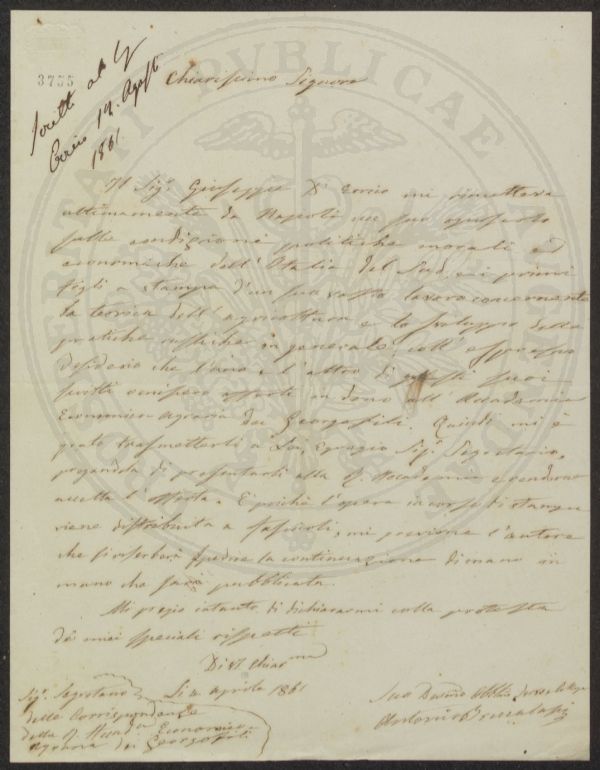 3755
Scritto al
17. Agosto
1861
Chiarissimo Signore
Il Sigr. Giuseppe D' mi rimetteva
ultimamente da Napoli un suo opuscolo
sulle condizioni politiche morali ed
economiche dell'Italia del Sud, e i primi
fogli a stampa d'un suo vasto lavoro concernente
la teorica dell'agricoltura e lo sviluppo delle
pratiche rustiche in generale, coll'espresso
desiderio che l'uno e l'altro di questi suoi
scritti venissero offerti in dono all'Accademia
Economico-Agraria dei Georgofili. Quindi mi è
grato trasmetterli a Lei, Egregio Sigr. Segretario,
pregandola di presentarli alla R. Accademia e renderne
accetta l'offerta. E poichè l'opera in corso di stampa
viene distribuita a fascicoli, mi previene l'autore
che si riserberà spedire la continuazione di mano in
mano che sarà pubblicata.
Mi pregio intanto di dichiararmi colla protesta
de' miei speciali rispetti
Di V.S. Chiarma
Li 4 aprile 1861
Sigr. Segretario
delle Corrispondenze
della R. Accada Economico-
Agraria dei Georgofili
Suo Devmo
Antonio
PVBLICAE